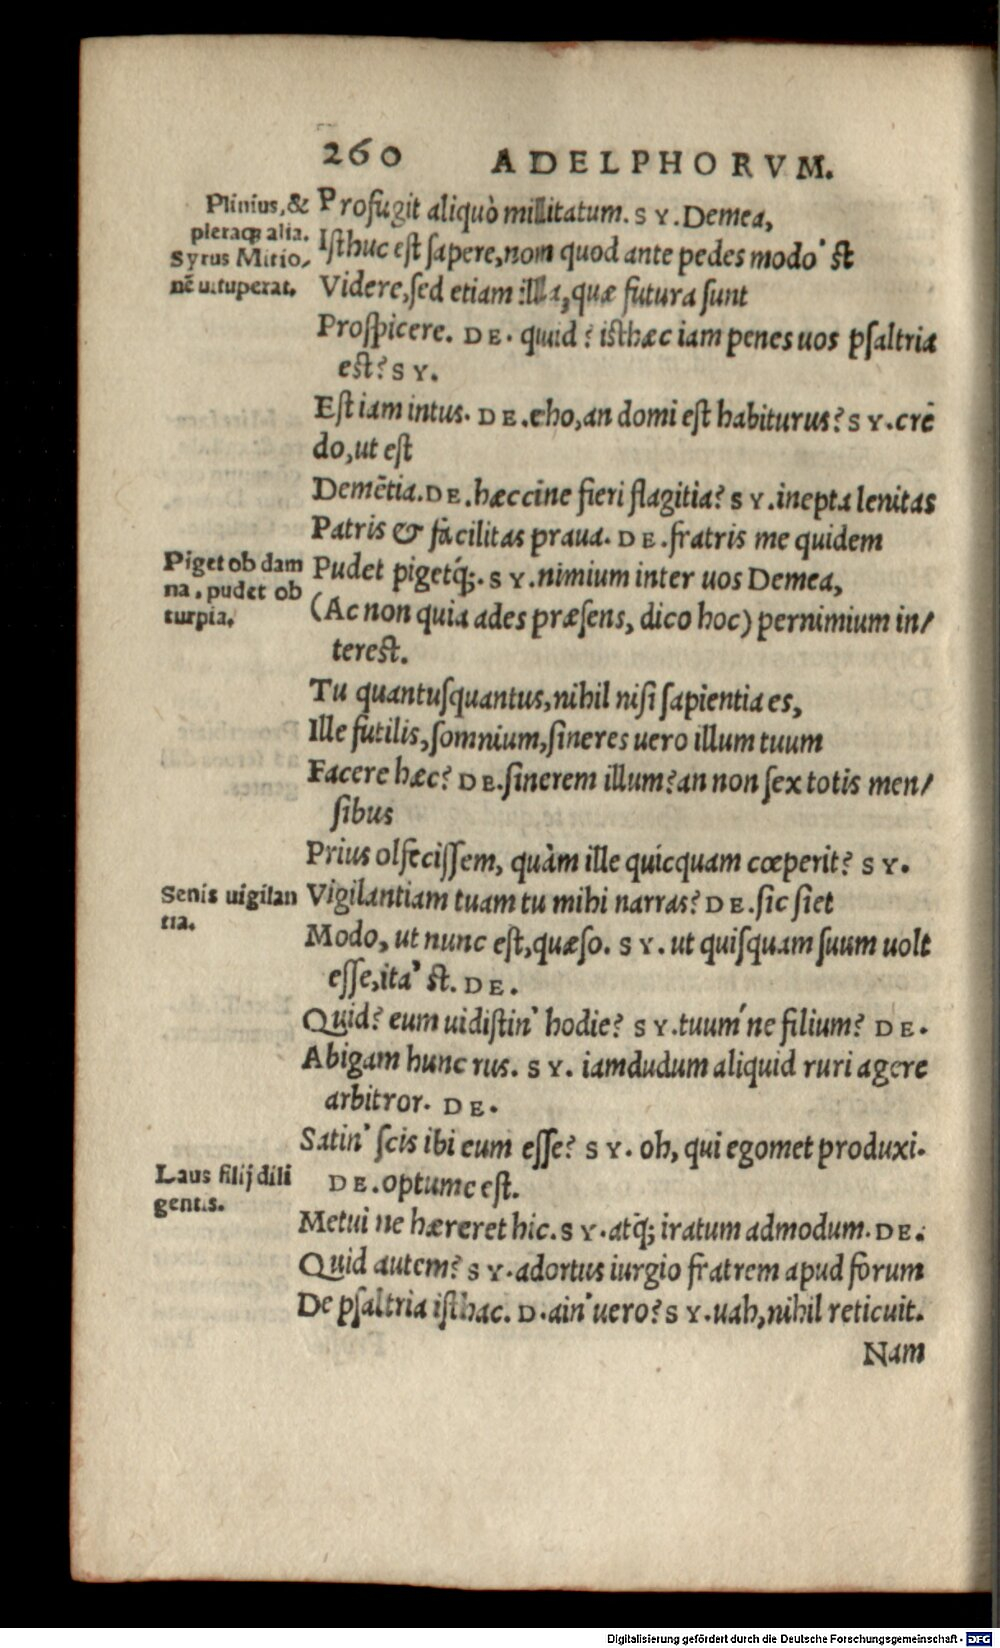 260 ADELPHORVM.
Plinius, &
pleraq; alia.
Syrus Mitio-
nē uituperat.
Profugit aliquò militatum. SY. Demea,
Isthuc est sapere, non quod ante pedes modo'st
Videre, sed etiam illa, quæ futura sunt
Prospicere. DE. quid? isthæc iam penes uos psaltria
est? SY.
Est iam intus. DE. eho, an domi est habiturus? SY. crē
do, ut est
Demētia. DE. hæccine fieri flagitia? SY. inepta lenitas
Patris & facilitas praua. DE. fratris me quidem
Piget ob dam
na, pudet ob
turpia.
Pudet pigetq́;. SY. nimium inter uos Demea,
(Ac non quia ades præsens, dico hoc) pernimium in/
terest.
Tu quantusquantus, nihil nisi sapientia es,
Ille futilis, somnium, sineres uero illum tuum
Facere hæc? DE. sinerem illum? an non sex totis men/
sibus
Prius olfecissem, quàm ille quicquam cœperit? SY.
Senis uigilan
tia.
Vigilantiam tuam tu mihi narras? DE. sic siet
Modo, ut nunc est, quæso. SY. ut quisquam suum uolt
esse, ita'st. DE.
Quid? eum uidistin' hodie? SY. tuum'ne filium? DE.
Abigam hunc rus. SY. iamdudum aliquid ruri agere
arbitror. DE.
Satin' scis ibi eum esse? SY. oh, qui egomet produxi.
Laus filij dili
gentis.
DE. optume est.
Metui ne hæreret hic. SY. atq́; iratum admodum. DE.
Quid autem? SY. adortus iurgio fratrem apud forum
De psaltria isthac. D. ain' uero? SY. uah, nihil reticuit.
Nam
Digitalisierung gefördert durch die Deutsche Forschungsgemeinschaft - DFG